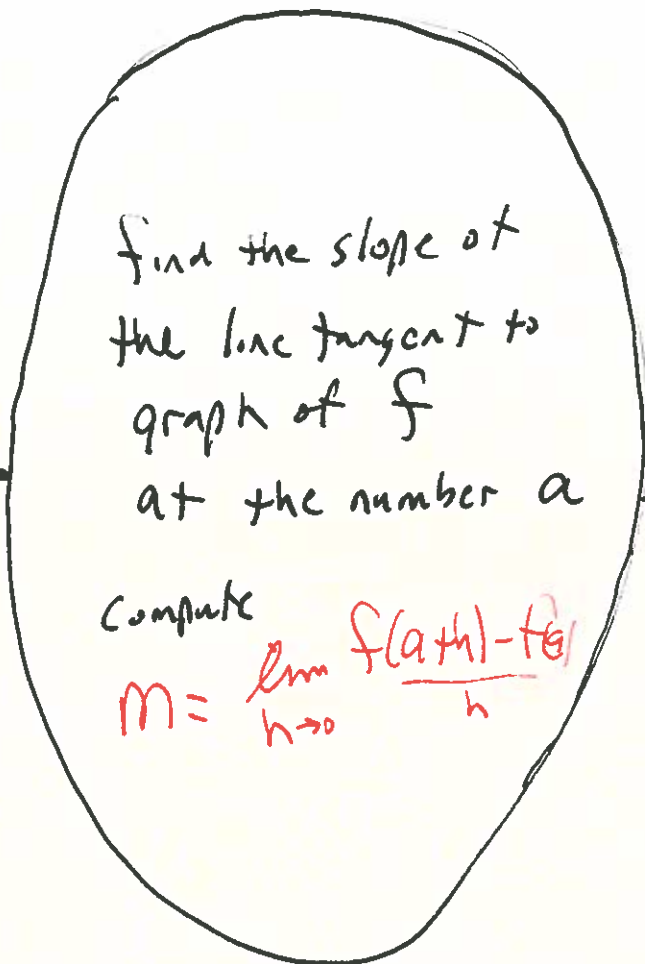 find the slope of
the line tangent to
graph of f
at the number a
compute
m = lim h→0 f(a+h) - f(a) / h